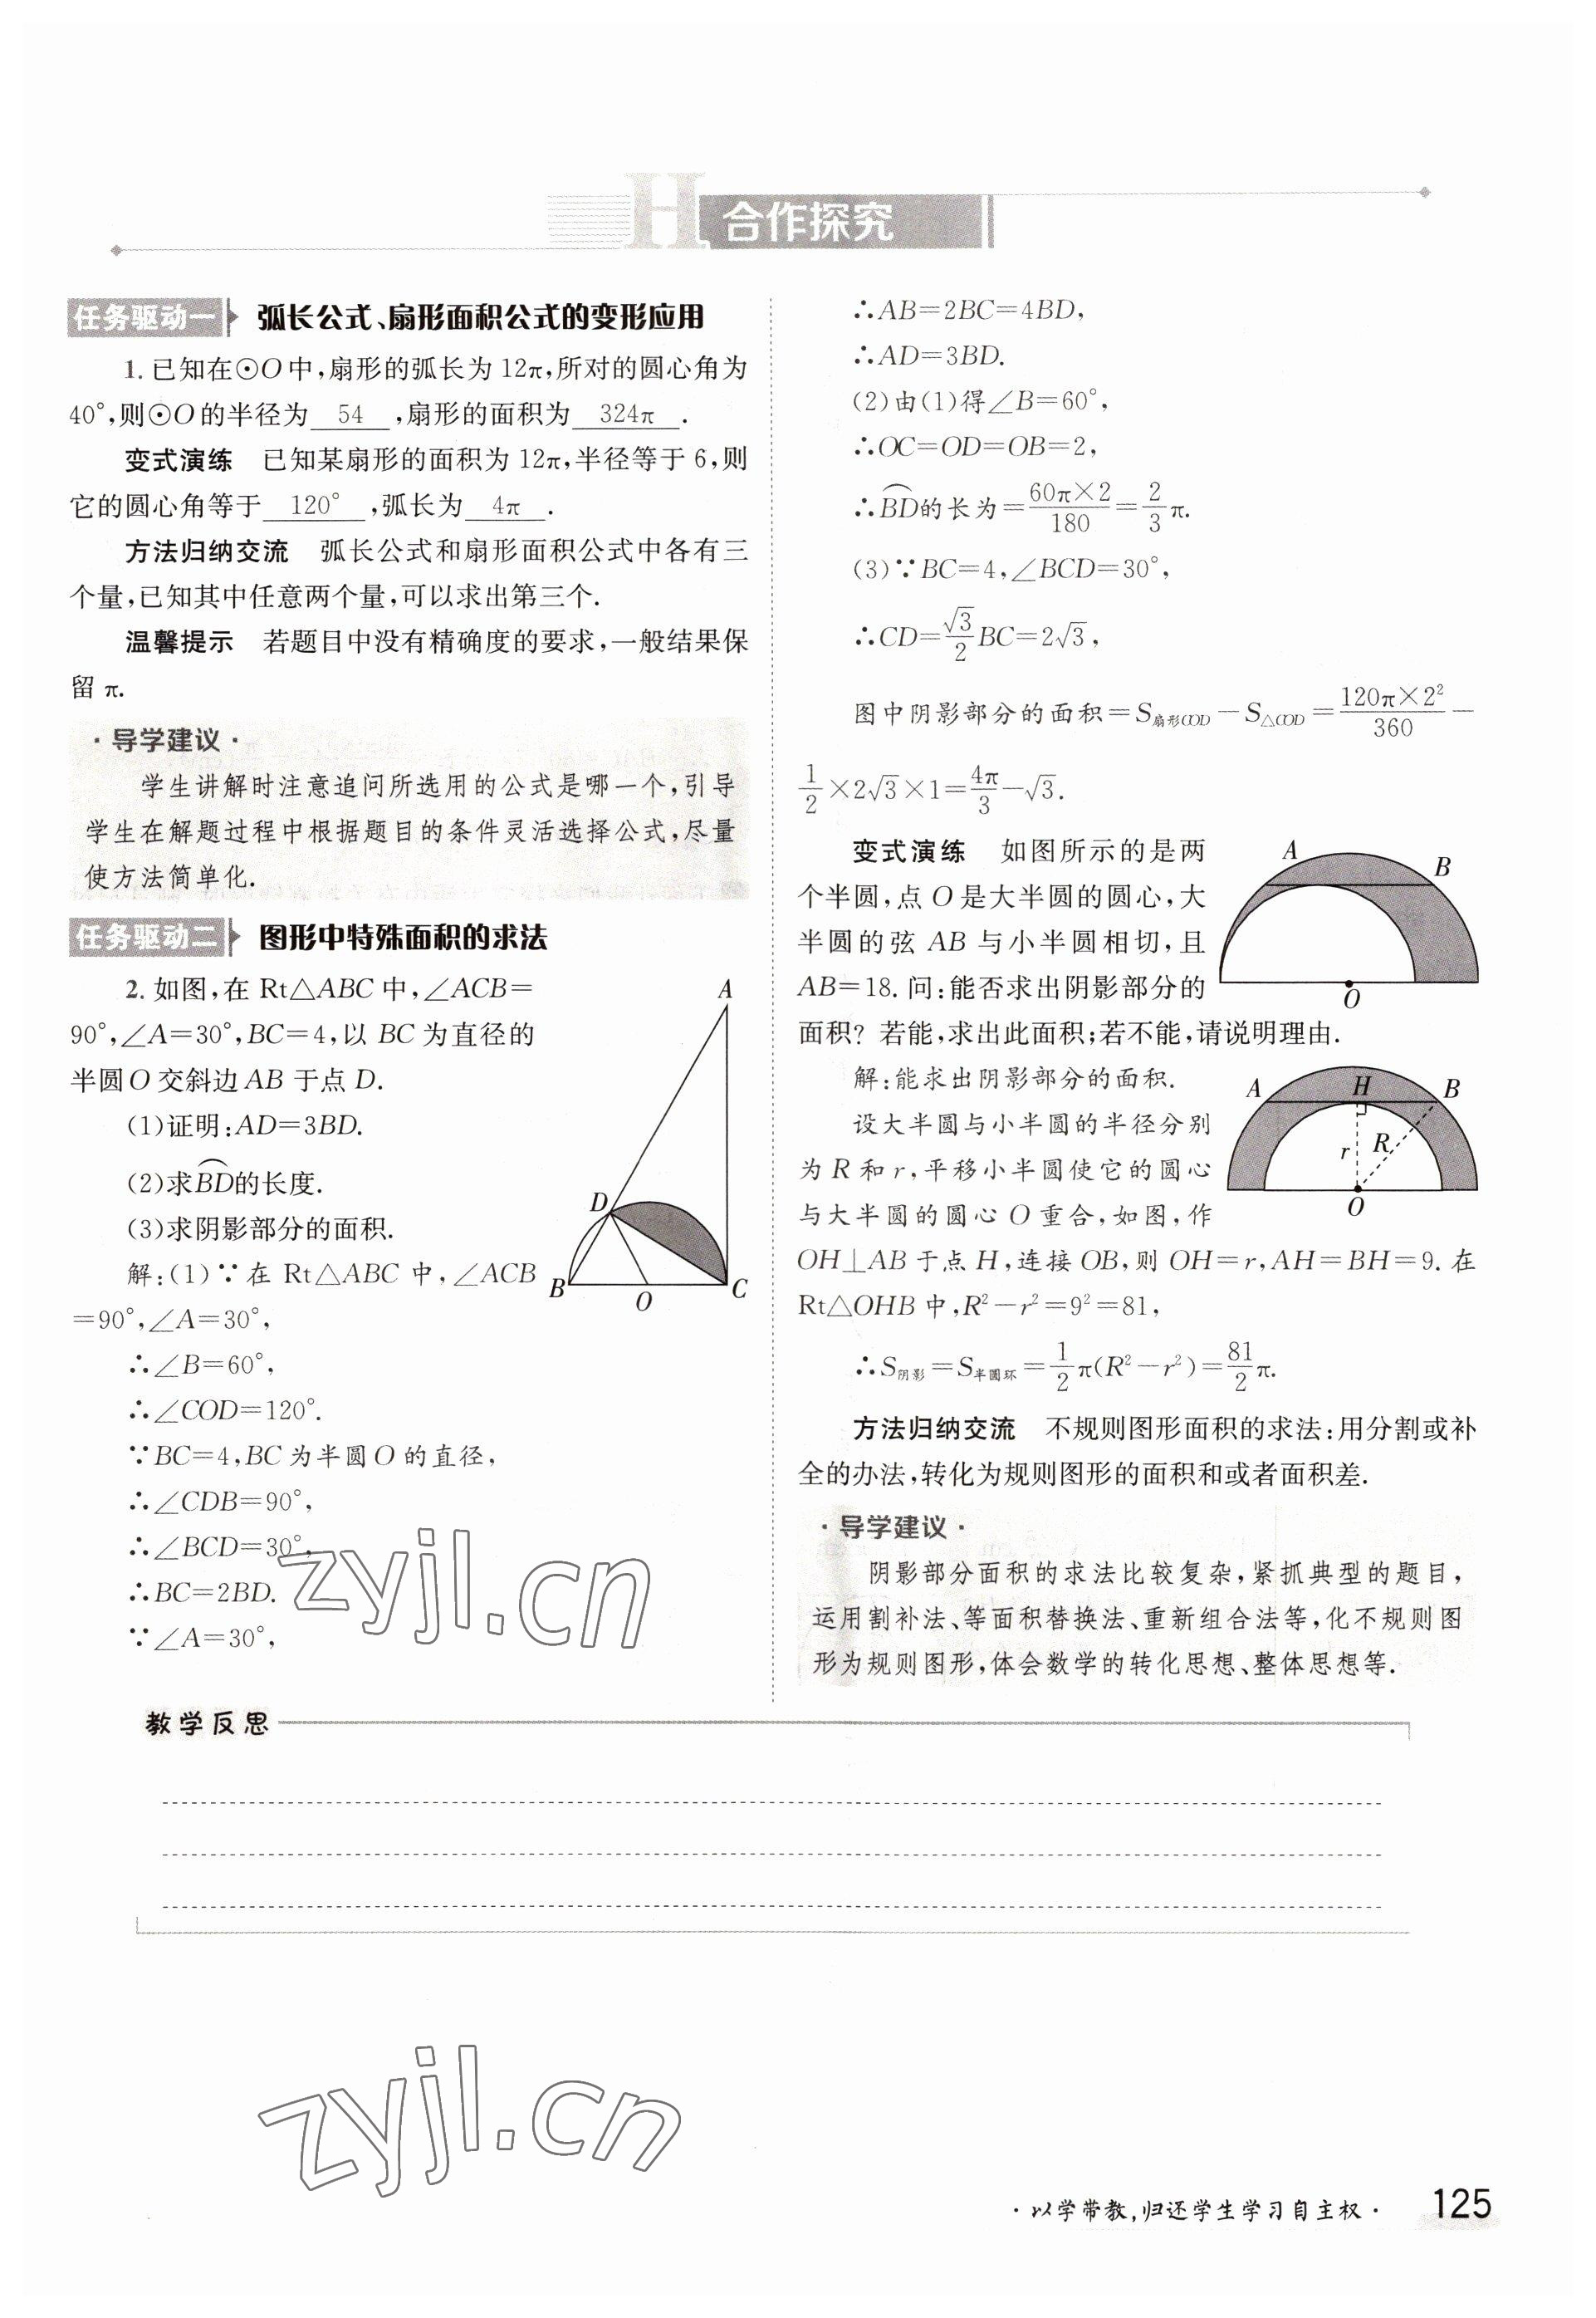 H 合作探究
任务驱动一 弧长公式、扇形面积公式的变形应用
1. 已知在⊙O中,扇形的弧长为12π,所对的圆心角为
40°,则⊙O的半径为 54 ,扇形的面积为 324π .
变式演练 已知某扇形的面积为12π,半径等于6,则
它的圆心角等于 120° ,弧长为 4π .
方法归纳交流 弧长公式和扇形面积公式中各有三
个量,已知其中任意两个量,可以求出第三个.
温馨提示 若题目中没有精确度的要求,一般结果保
留π.
·导学建议·
学生讲解时注意追问所选用的公式是哪一个,引导
学生在解题过程中根据题目的条件灵活选择公式,尽量
使方法简单化.
任务驱动二 图形中特殊面积的求法
2. 如图,在Rt△ABC中,∠ACB=
90°,∠A=30°,BC=4,以BC为直径的
半圆O交斜边AB于点D.
(1)证明:AD=3BD.
(2)求⌒BD的长度.
(3)求阴影部分的面积.
A
D
B
O
C
解:(1)∵在Rt△ABC中,∠ACB
=90°,∠A=30°,
∴∠B=60°,
∴∠COD=120°.
∵BC=4,BC为半圆O的直径,
∴∠CDB=90°,
∴∠BCD=30°,
∴BC=2BD.
∵∠A=30°,
∴AB=2BC=4BD,
∴AD=3BD.
(2)由(1)得∠B=60°,
∴OC=OD=OB=2,
∴⌒BD的长为=60π×2/180=2/3π.
(3)∵BC=4,∠BCD=30°,
∴CD=√3/2BC=2√3,
图中阴影部分的面积=S扇形COD-S△COD=120π×2²/360-
1/2×2√3×1=4π/3-√3.
变式演练 如图所示的是两
个半圆,点O是大半圆的圆心,大
半圆的弦AB与小半圆相切,且
AB=18.问:能否求出阴影部分的
面积?若能,求出此面积;若不能,请说明理由.
A
B
O
解:能求出阴影部分的面积.
设大半圆与小半圆的半径分别
为R和r,平移小半圆使它的圆心
与大半圆的圆心O重合,如图,作
OH⊥AB于点H,连接OB,则OH=r,AH=BH=9.在
Rt△OHB中,R²-r²=9²=81,
A
H
B
r
R
O
∴S阴影=S半圆环=1/2π(R²-r²)=81/2π.
方法归纳交流 不规则图形面积的求法:用分割或补
全的办法,转化为规则图形的面积和或者面积差.
·导学建议·
阴影部分面积的求法比较复杂,紧抓典型的题目,
运用割补法、等面积替换法、重新组合法等,化不规则图
形为规则图形,体会数学的转化思想、整体思想等.
zyjl.cn
教学反思
zyjl.cn
·以学带教,归还学生学习自主权· 125